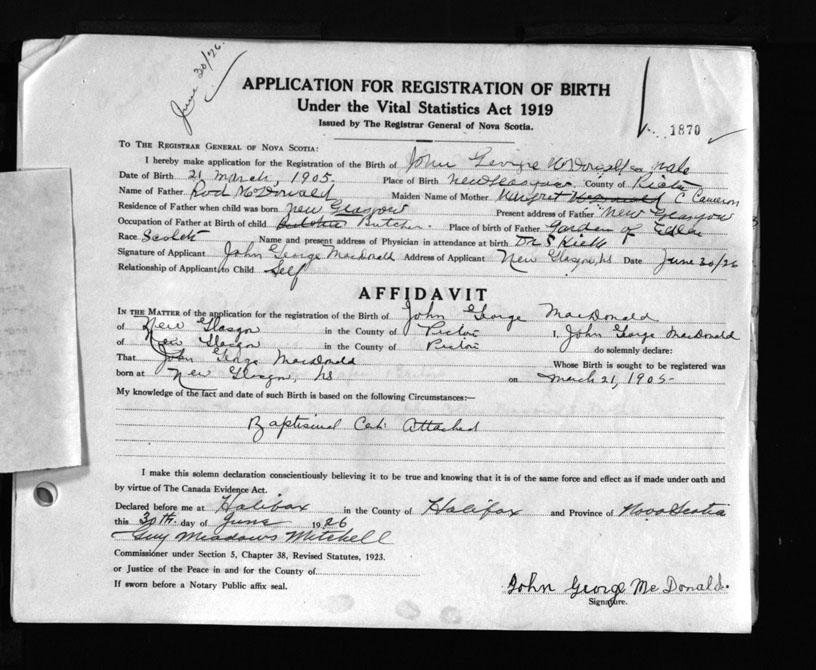 June 30/26.
APPLICATION FOR REGISTRATION OF BIRTH
Under the Vital Statistics Act 1919
Issued by The Registrar General of Nova Scotia.
1870
TO THE REGISTRAR GENERAL OF NOVA SCOTIA:
I hereby make application for the Registration of the Birth of John George McDonald male
Date of Birth 21 March, 1905. Place of Birth New Glasgow County of Pictou
Name of Father Rod McDonald Maiden Name of Mother Margret C Cameron
Residence of Father when child was born New Glasgow Present address of Father New Glasgow
Occupation of Father at Birth of child Butcher Butcher. Place of birth of Father Garden of Eden
Race Scotch Name and present address of Physician in attendance at birth Dr S Kieth
Signature of Applicant John George MacDonald Address of Applicant New Glasgow, NS Date June 30/26
Relationship of Applicant to Child Self
AFFIDAVIT
IN THE MATTER of the application for the registration of the Birth of John George MacDonald
of New Glasgow in the County of Pictou I, John George MacDonald
of New Glasgow in the County of Pictou do solemnly declare:
That John George MacDonald Whose Birth is sought to be registered was
born at New Glasgow, NS on March 21, 1905-
My knowledge of the fact and date of such Birth is based on the following Circumstances:—
Baptismal Attached
I make this solemn declaration conscientiously believing it to be true and knowing that it is of the same force and effect as if made under oath and
by virtue of The Canada Evidence Act.
Declared before me at Halifax in the County of Halifax and Province of Nova Scotia
this 30th. day of June 1926
Guy Meadows Mitchell
Commissioner under Section 5, Chapter 38, Revised Statutes, 1923.
or Justice of the Peace in and for the County of
If sworn before a Notary Public affix seal.
John George McDonald.
Signature.